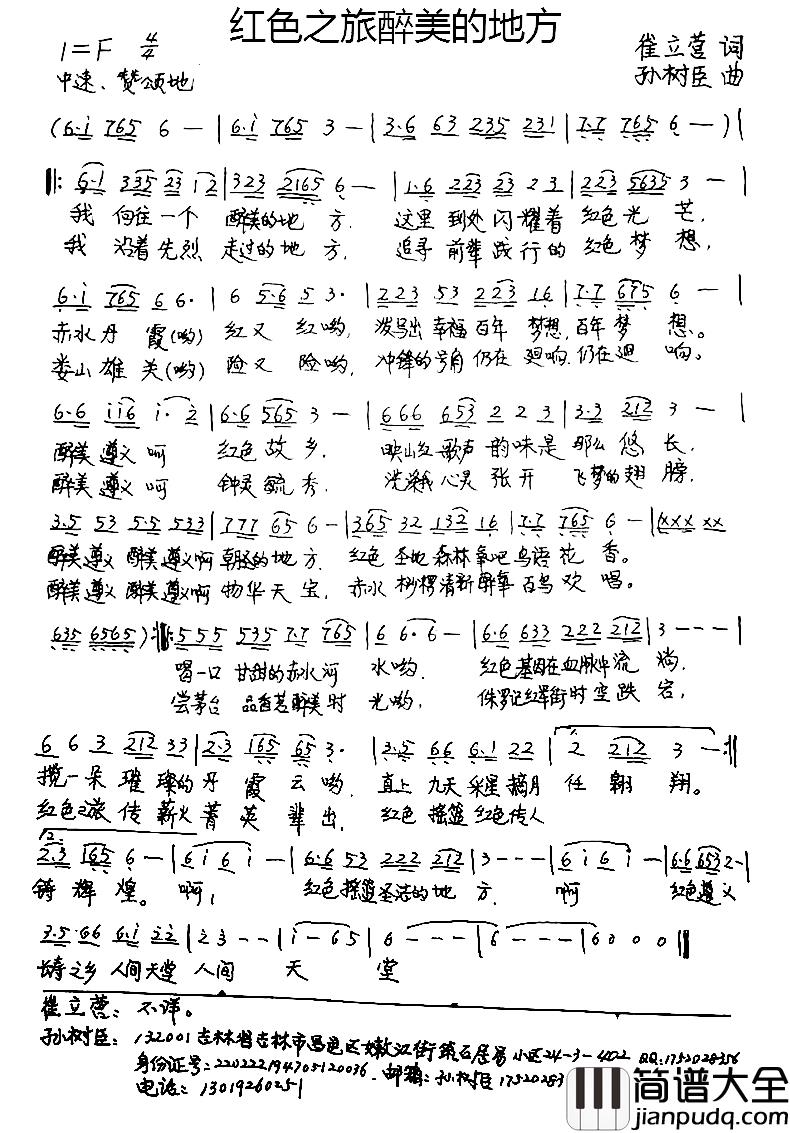 红色之旅醉美的地方
1=F 4/4
崔立营 词
中速、赞颂地
孙树臣 曲
(6·i 765 6 — | 6·i 765 3 — | 3·6 63 235 231 | 7·7 765 6 — ) |
‖: 6·1 335 23 12 | 323 2165 6 — | 1·6 223 23 23 | 223 5635 3 — |
我 向往一个 醉美的地 方, 这里 到处闪耀着 红色光 芒,
我 沿着先烈 走过的地 方, 追寻 前辈践行的 红色梦 想,
6·i 765 6 6· | 6 5·6 5 3· | 223 53 223 16 | 7·7 675 6 — |
赤水丹 霞(哟) 红又 红哟, 泼写出幸福百年 梦想,百年梦 想。
娄山雄 关(哟) 险又 险哟, 冲锋的号角仍在 迴响,仍在迴 响。
6·6 ii6 i· 2 | 6·6 565 3 — | 666 653 2 2 3 | 3·3 212 3 — |
醉美 遵义 呵 红色 故 乡, 映山红 歌声 韵味是 那么 悠 长,
醉美 遵义 呵 钟灵 毓 秀, 洗涤我 心灵 张 开 飞梦的翅 膀,
3·5 53 5·5 533 | 777 65 6 — | 365 32 132 16 | 7·7 765 6 — | xxx xx
醉美遵义 醉美遵义啊 朝圣的地 方, 红色 圣地 森林氧吧 鸟语 花 香。
醉美遵义 醉美遵义啊 物华天 宝, 赤水 桫椤清新醉氧 百鸟 欢 唱。
635 6565 ) :‖: 555 535 7·7 765 | 6 6· 6 — | 6·6 633 222 212 | 3 — — — |
喝一口 甘甜的赤水河 水哟, 红色基因在血脉中流 淌,
尝茅台 品香茗醉美时 光哟, 侏罗记红军街时空跌 宕,
6 6 3 212 33 | 2·3 165 65 3· | 3·5 66 6·1 22 | 2 212 3 — :‖
揽一朵 璀 璨的丹 霞 云 哟, 直上 九天 采星 摘月 任 翱 翔。
红色之旅 传 薪火 菁 英 辈 出, 红色 摇篮 红色传人
2.
2·3 165 6 — | 6 i 6 i — | 6·6 53 222 212 | 3 — — — | 6 i 6 i — | 6·6 653 2 — |
铸 辉 煌。 啊, 红色摇篮圣洁的地 方, 啊 红色遵义
3·5·66 6·i 22 | 2 3 — — | i — 6 5 | 6 — — — | 6 — — — | 6 0 0 0 ‖
诗之乡 人间天堂 人间 天 堂
崔立营: 不详。
孙树臣: 132001 吉林省吉林市昌邑区嫩江街 居易小区24-3-402 QQ:1752028356
身份证号:220222194705120036. 邮箱:孙树臣17520283
电话: 13019260251
简谱大全
jianpudq.com